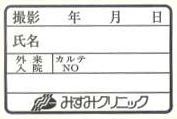 撮影 年 月 日
氏名
外来 カルテ
入院 NO
みすみクリニック